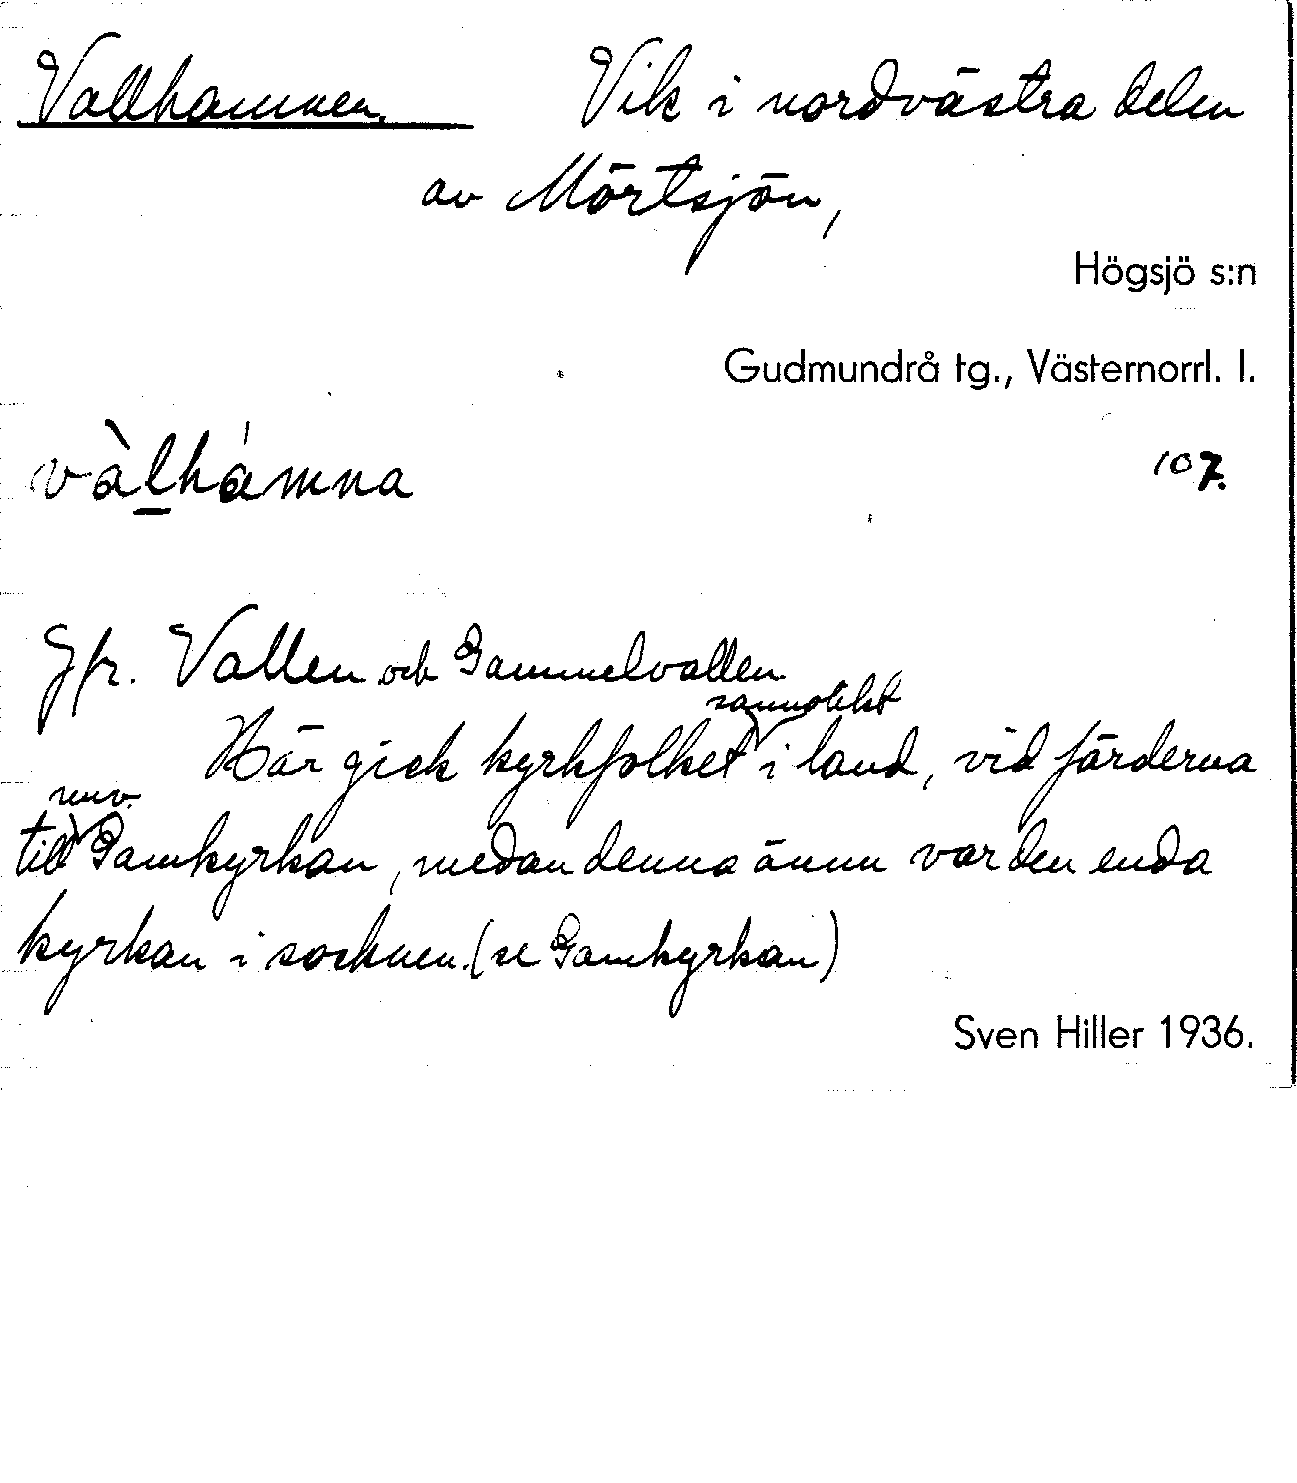 Vallhamnen. Vik i nordvästra delen
av Mörtsjön,
Högsjö s:n
Gudmundrå tg., Västernorrl. l.
vàl̲hámna 107.
Jfr. Vallen och Gammelvallen
sannolikt
Här gick kyrkfolket i land, vid färderna
nuv.
till Gamkyrkan, medan denna ännu var den enda
kyrkan i socknen. (se Gamkyrkan)
Sven Hiller 1936.